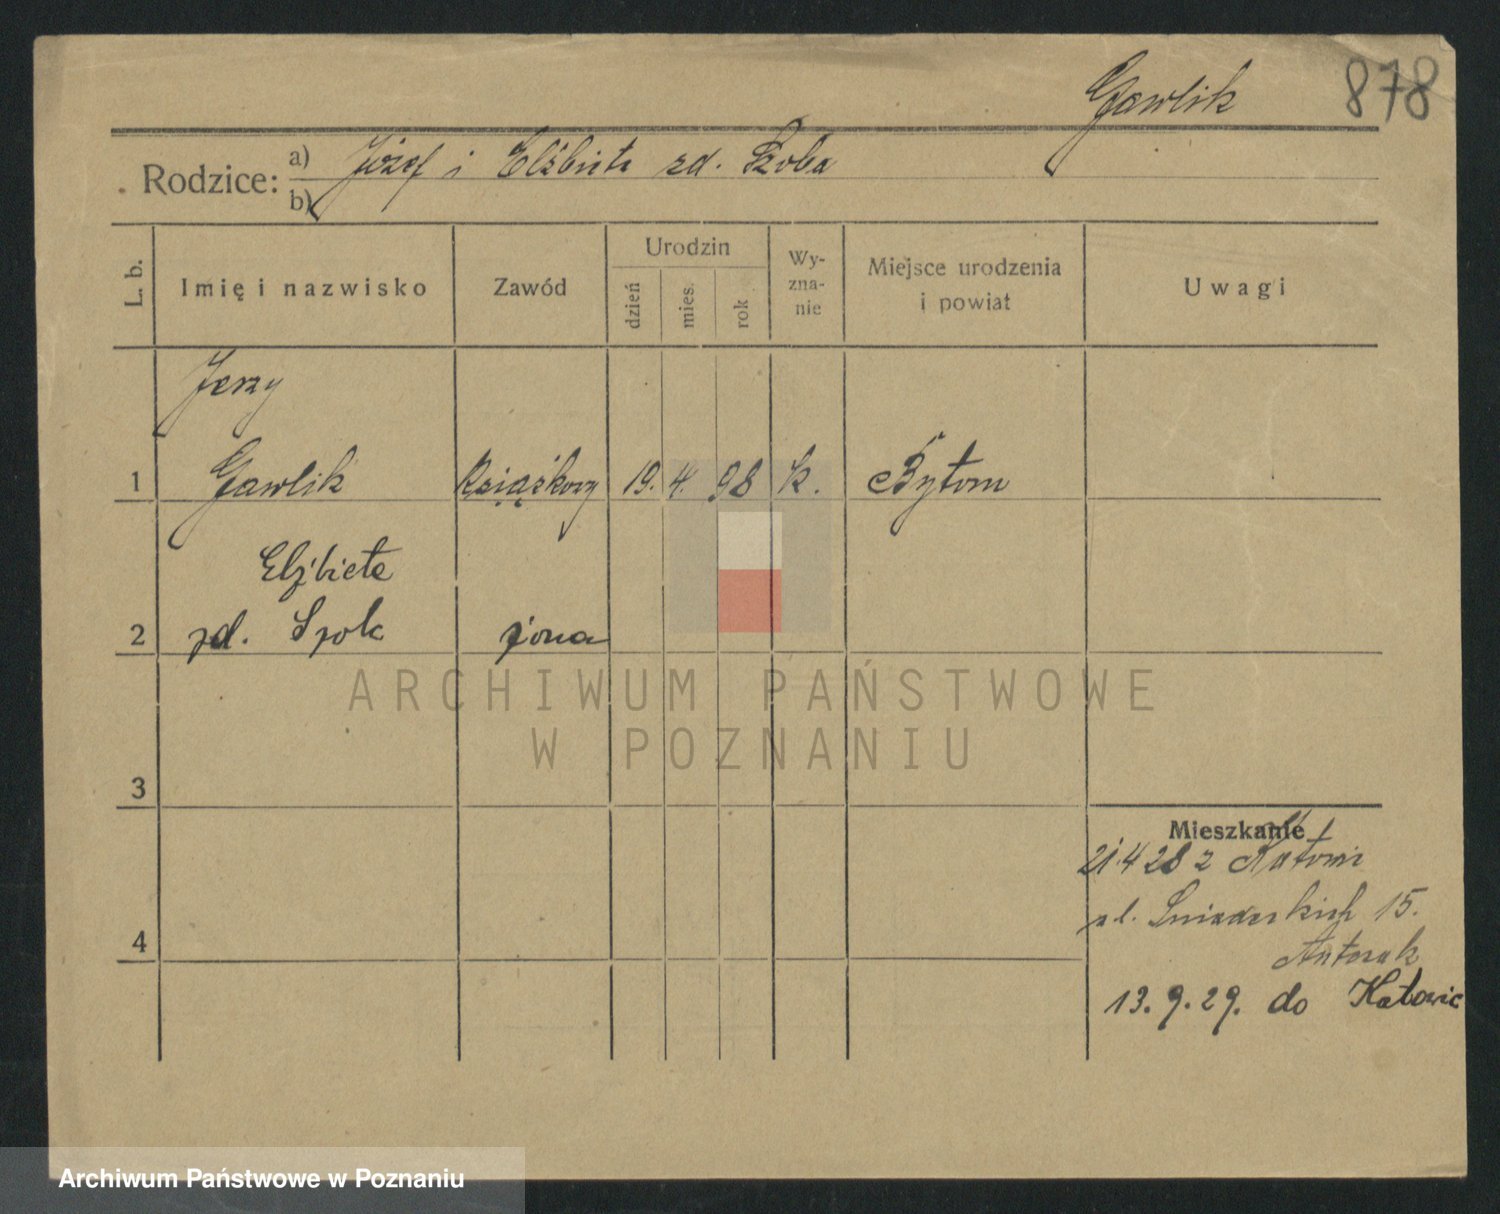 Gawlik 878
Rodzice: a) Józef i Elżbieta zd. Szoba
b)
L. b. Imię i nazwisko Zawód Urodzin dzień mies. rok Wyznanie Miejsce urodzenia i powiat Uwagi
Jerzy
1 Gawlik książkowy 19. 4. 98 k. Bytom
Elżbieta
2 zd. żona
3
Mieszkanie
21.4 28 z
ul. Śniadeckich 15.
4
13. 9. 29. do Katowic
ARCHIWUM PAŃSTWOWE
W POZNANIU
Archiwum Państwowe w Poznaniu